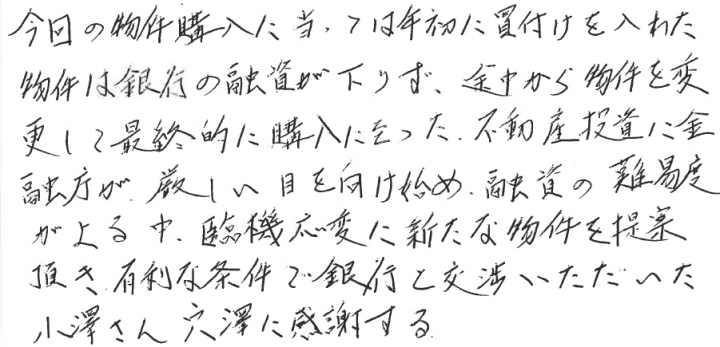 今回の物件購入に当っては年初に買付けを入れた
物件は銀行の融資が下りず、途中から物件を変
更して最終的に購入に至った。不動産投資に金
融庁が厳しい目を向け始め、融資の難易度
が上る中、臨機応変に新たな物件を提案
頂き有利な条件で銀行と交渉いただいた
小澤さん 穴澤に感謝する